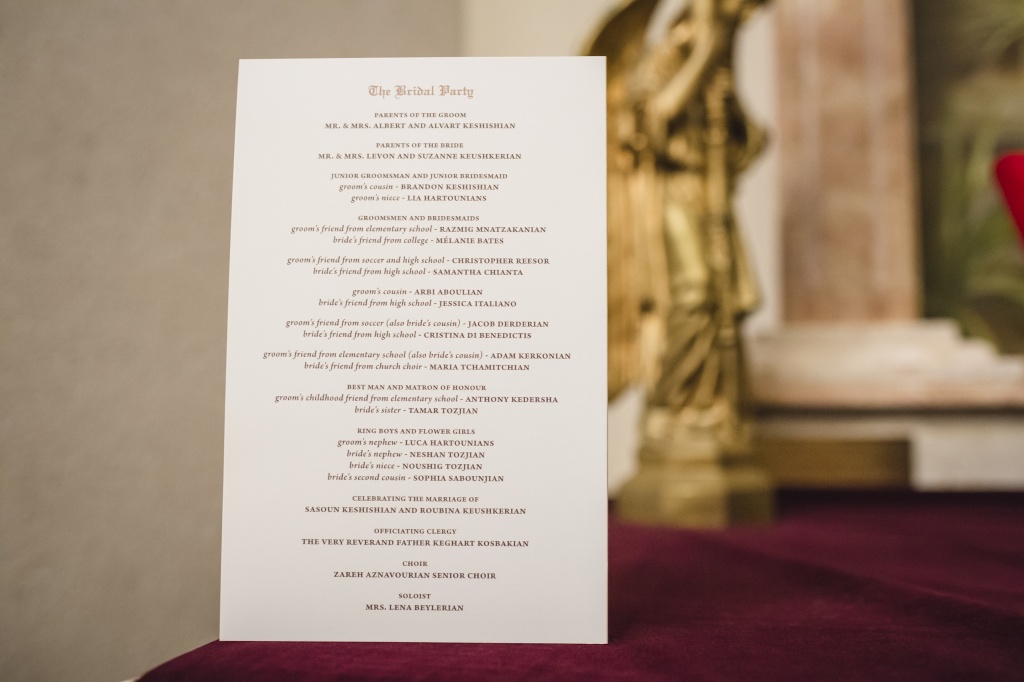 The Bridal Party
PARENTS OF THE GROOM
MR. & MRS. ALBERT AND ALVART KESHISHIAN
PARENTS OF THE BRIDE
MR. & MRS. LEVON AND SUZANNE KEUSHKERIAN
JUNIOR GROOMSMAN AND JUNIOR BRIDESMAID
groom's cousin - BRANDON KESHISHIAN
groom's niece - LIA HARTOUNIANS
GROOMSMEN AND BRIDESMAIDS
groom's friend from elementary school - RAZMIG MNATZAKANIAN
bride's friend from college - MÉLANIE BATES
groom's friend from soccer and high school - CHRISTOPHER REESOR
bride's friend from high school - SAMANTHA CHIANTA
groom's cousin - ARBI ABOULIAN
bride's friend from high school - JESSICA ITALIANO
groom's friend from soccer (also bride's cousin) - JACOB DERDERIAN
bride's friend from high school - CRISTINA DI BENEDICTIS
groom's friend from elementary school (also bride's cousin) - ADAM KERKONIAN
bride's friend from church choir - MARIA TCHAMITCHIAN
BEST MAN AND MATRON OF HONOUR
groom's childhood friend from elementary school - ANTHONY KEDERSHA
bride's sister - TAMAR TOZJIAN
RING BOYS AND FLOWER GIRLS
groom's nephew - LUCA HARTOUNIANS
bride's nephew - NESHAN TOZJIAN
bride's niece - NOUSHIG TOZJIAN
bride's second cousin - SOPHIA SABOUNJIAN
CELEBRATING THE MARRIAGE OF
SASOUN KESHISHIAN AND ROUBINA KEUSHKERIAN
OFFICIATING CLERGY
THE VERY REVERAND FATHER KEGHART KOSBAKIAN
CHOIR
ZAREH AZNAVOURIAN SENIOR CHOIR
SOLOIST
MRS. LENA BEYLERIAN